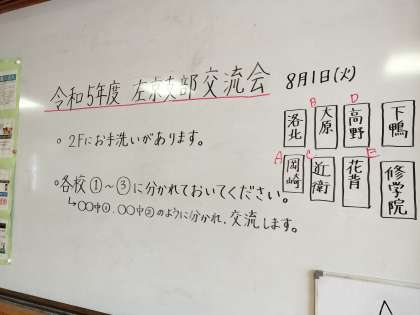 令和5年度 左京支部交流会 8月1日(火)
B D
洛北 大原 高野 下鴨
。2Fにお手洗いがあります。
A C E
岡崎 近衛 花背 修学院
。各校①～③に分かれておいてください。
↳〇〇中①、〇〇中②のように分かれ、交流します。